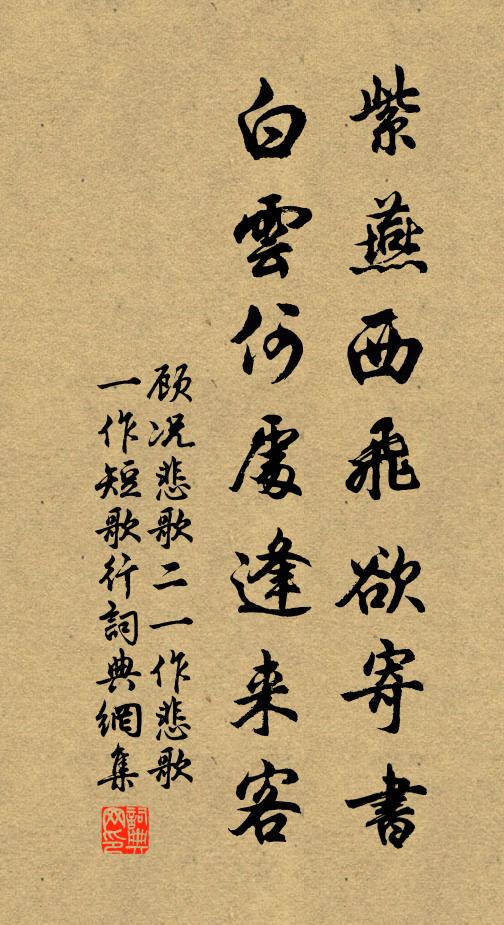 紫燕西飛欲寄書
白雲何處逢来客
顾况悲歌二一作悲歌
一作短歌行詞典網集
詞典
网印